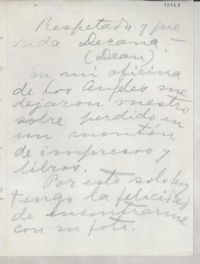 Respetada y que
rida Decana
(Dean)
su mi oficina
de Los Angeles me
dejaron vuestro
sobre perdido en
un montón
de impresos y
libros.
Por esto solo hoy
tengo la felicidad
de encontrarme
con su foto.